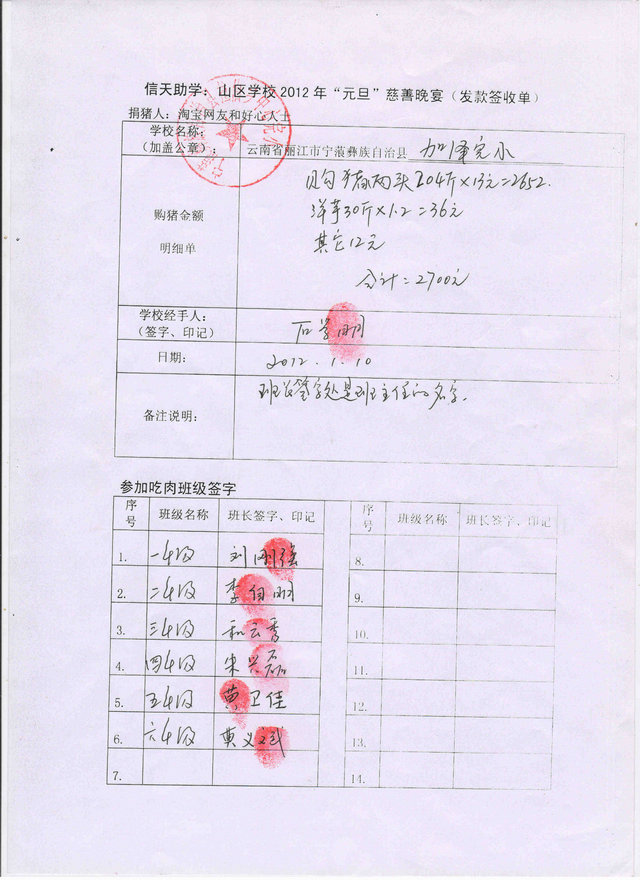 信天助学：山区学校2012年“元旦”慈善晚宴（发款签收单）
捐猪人：淘宝网友和好心人士
学校名称：
（加盖公章）：
云南省丽江市宁蒗彝族自治县 加泽完小
购猪金额
明细单
购猪两头204斤×13元=2652.
洋芋30斤×1.2=36元
其它12元
合计=2700元
学校经手人：
（签字、印记）
石学明
日期：
2012.1.10
备注说明：
班长签字处是班主任的名字.
参加吃肉班级签字
序号 班级名称 班长签字、印记 序号 班级名称 班长签字、印记
1. 一年级 刘刚强 8.
2. 二年级 李自明 9.
3. 三年级 和云秀 10.
4. 四年级 朱兴磊 11.
5. 五年级 黄卫佳 12.
6. 六年级 莫义斌 13.
7. 14.